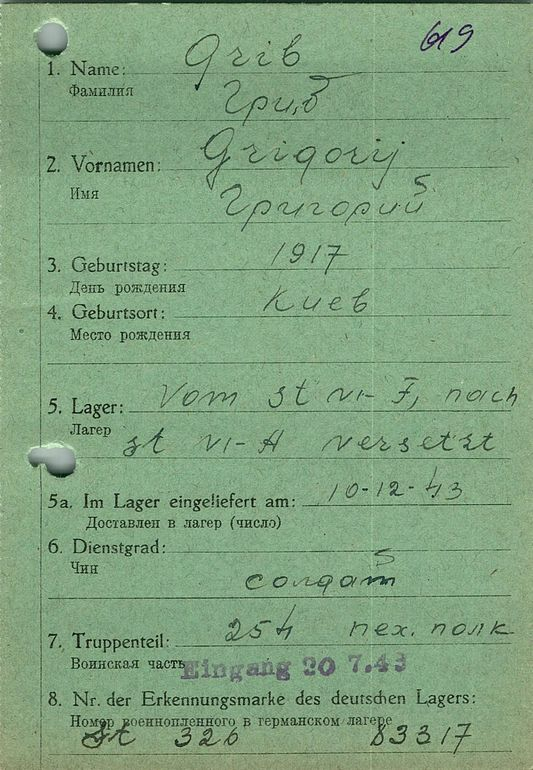 619
1. Name: Grib
Фамилия
Гриб
2. Vornamen: Grigorij
Имя
Григорий
3. Geburtstag: 1917
День рождения
4. Geburtsort: Киев
Место рождения
5. Lager: Vom St VI-F, nach
Лагер
St VI-A versetzt
5a. Im Lager eingeliefert am: 10-12-43
Доставлен в лагер (число)
6. Dienstgrad:
Чин
солдат
7. Truppenteil: 254 пех. полк
Воинская часть
Eingang 20 7.43
8. Nr. der Erkennungsmarke des deutschen Lagers:
Номер военнопленного в германском лагере
St 326 83317